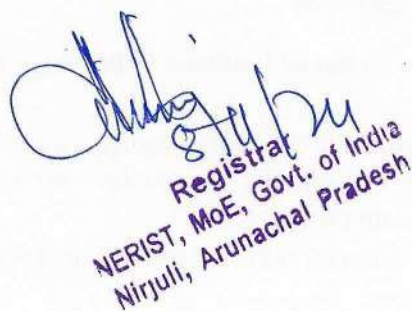 8/4/24
Registrar
NERIST, MoE, Govt. of India
Nirjuli, Arunachal Pradesh